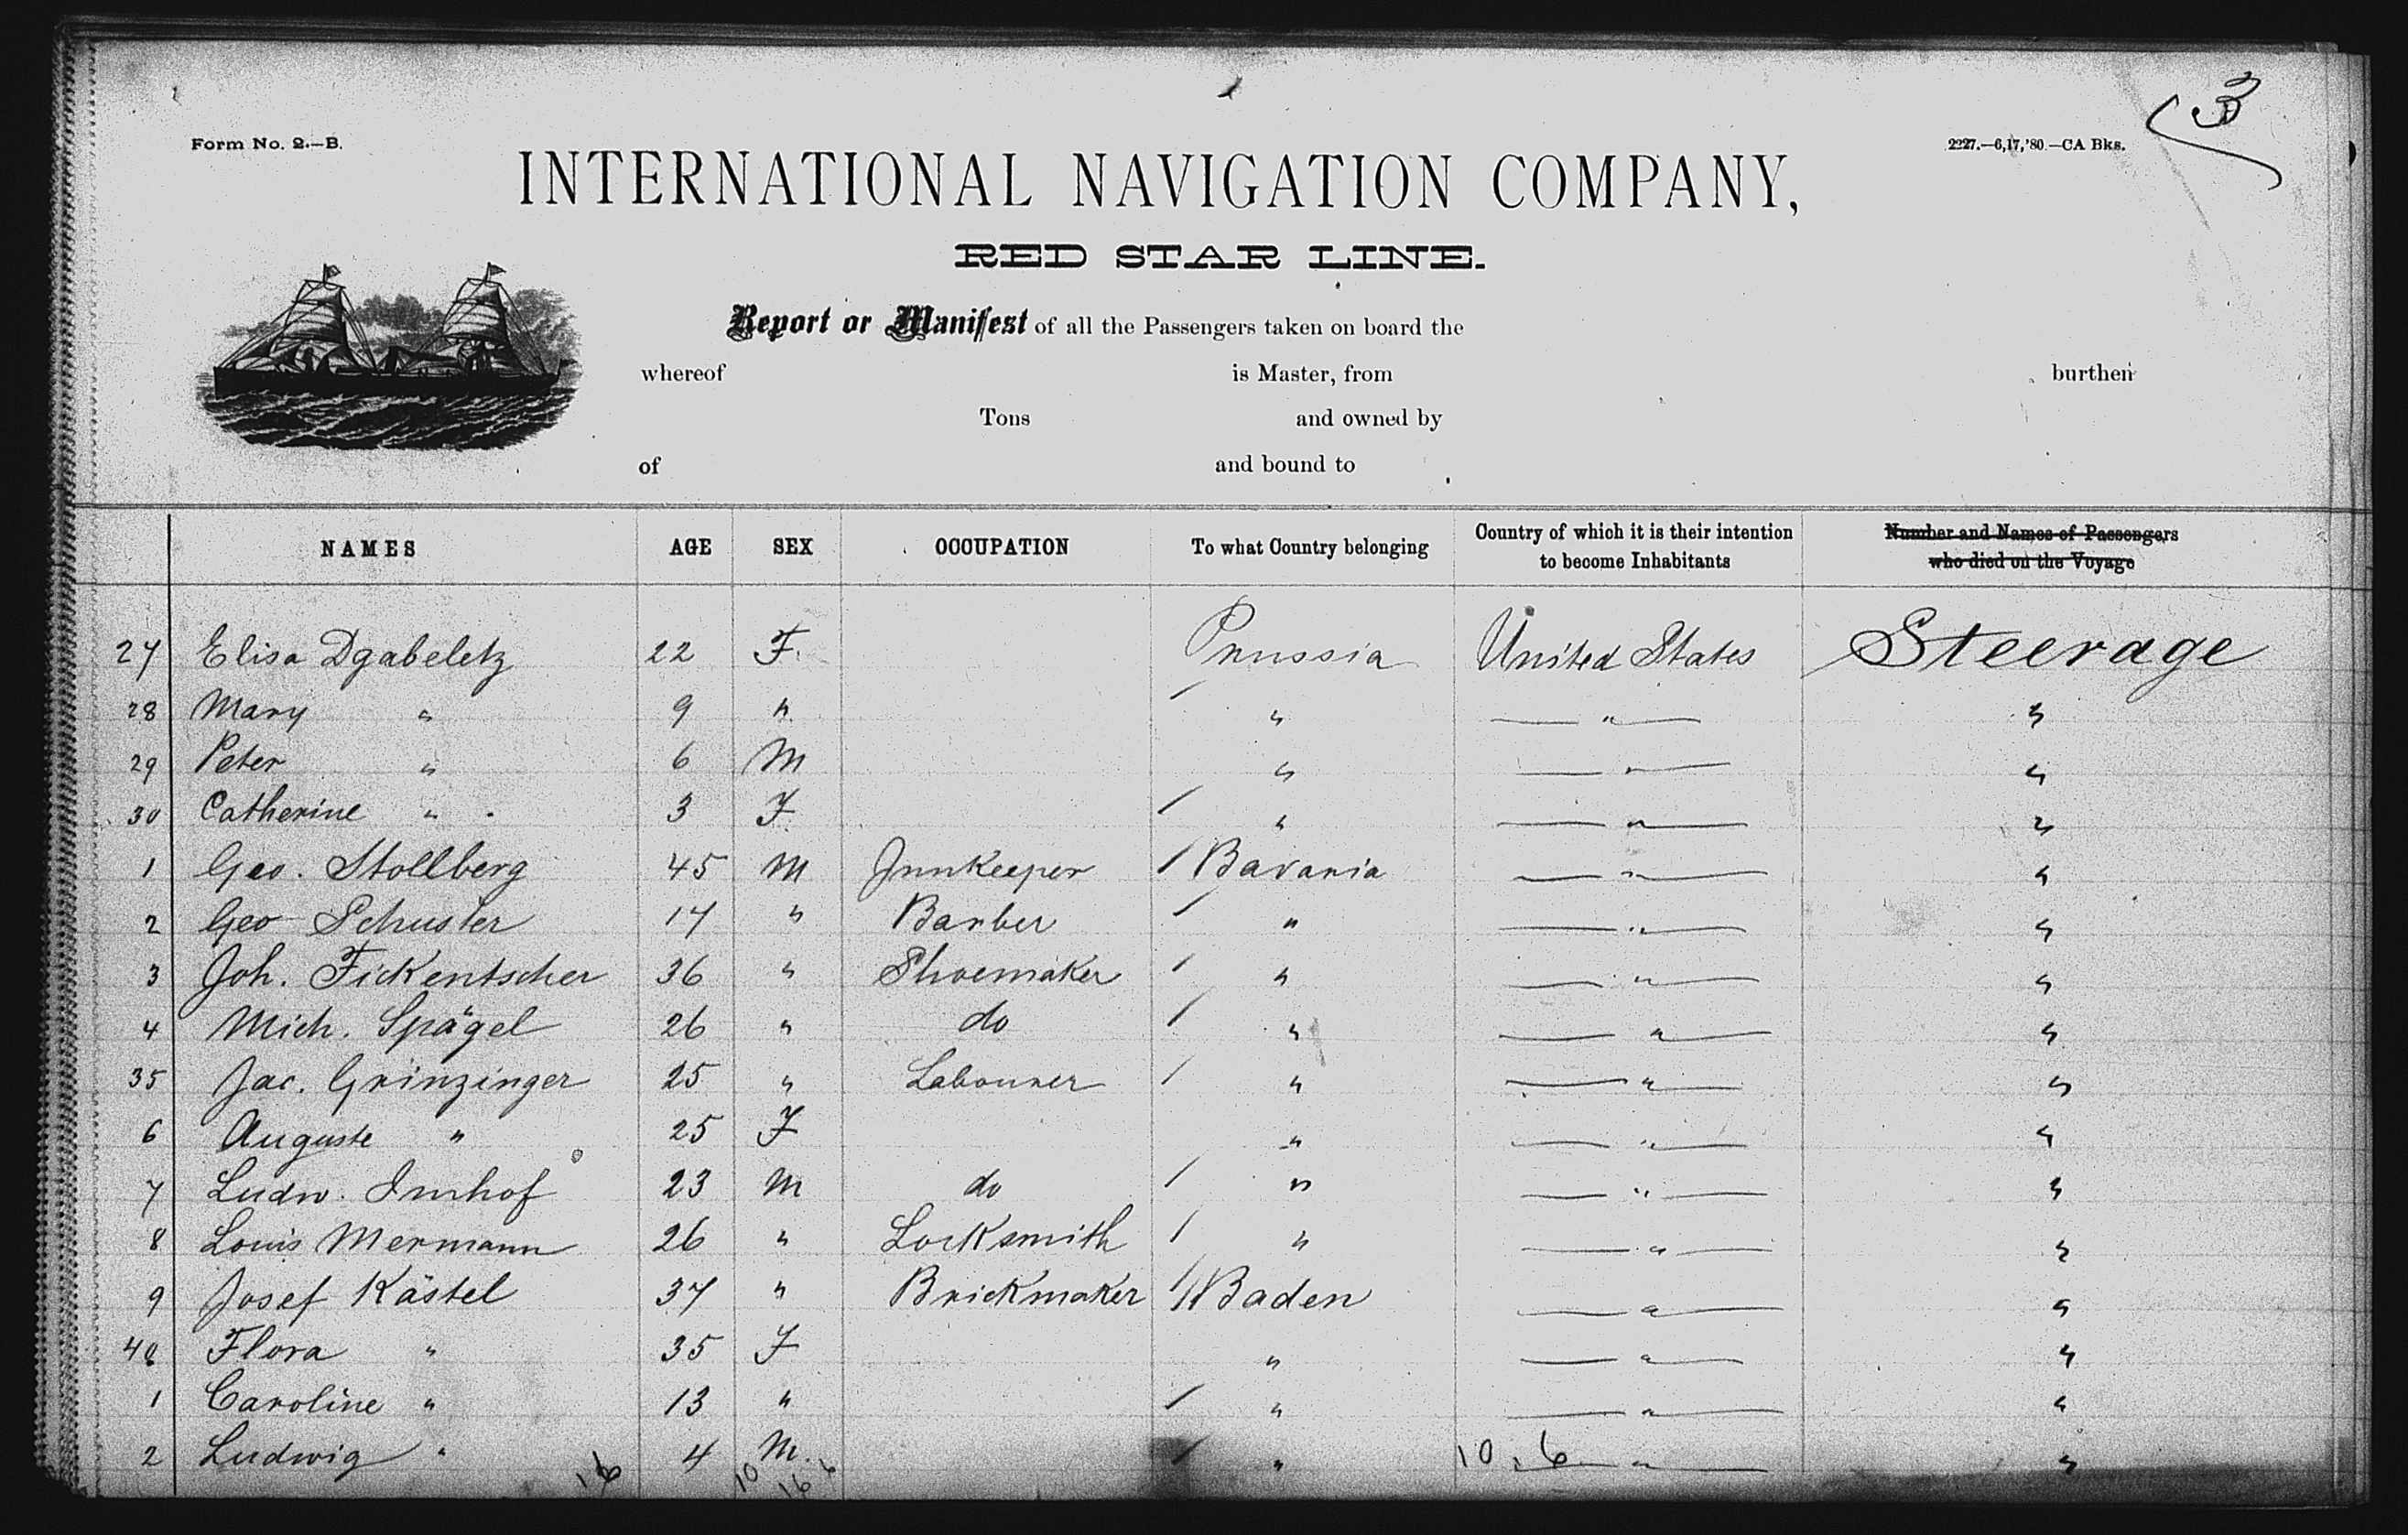 3
Form No. 2.—B.
2227.—6,17,'80.—CA Bks.
INTERNATIONAL NAVIGATION COMPANY,
RED STAR LINE.
Report or Manifest of all the Passengers taken on board the
whereof is Master, from burthen
Tons and owned by
of and bound to
NAMES AGE SEX OCCUPATION To what Country belonging Country of which it is their intention to become Inhabitants Number and Names of Passengers who died on the Voyage
27 Elisa Dgabeletz 22 F. Prussia United States Steerage
28 Mary " 9 " " " "
29 Peter " 6 M " " "
30 Catherine " 3 F " " "
1 Geo. Stollberg 45 M Innkeeper Bavaria " "
2 Geo Schuster 17 " Barber " " "
3 Joh. Fickentscher 36 " Shoemaker " " "
4 Mich. Spägel 26 " do " " "
35 Jac. Grinzinger 25 " Labourer " " "
6 Auguste " 25 F " " "
7 Ludw. Imhof 23 M do " " "
8 Louis Mermann 26 " Locksmith " " "
9 Josef Kästel 37 " Brickmaker Baden " "
40 Flora " 35 F " " "
1 Caroline " 13 " " " "
2 Ludwig " 4 M. " " "
16 10 16 6 10.6